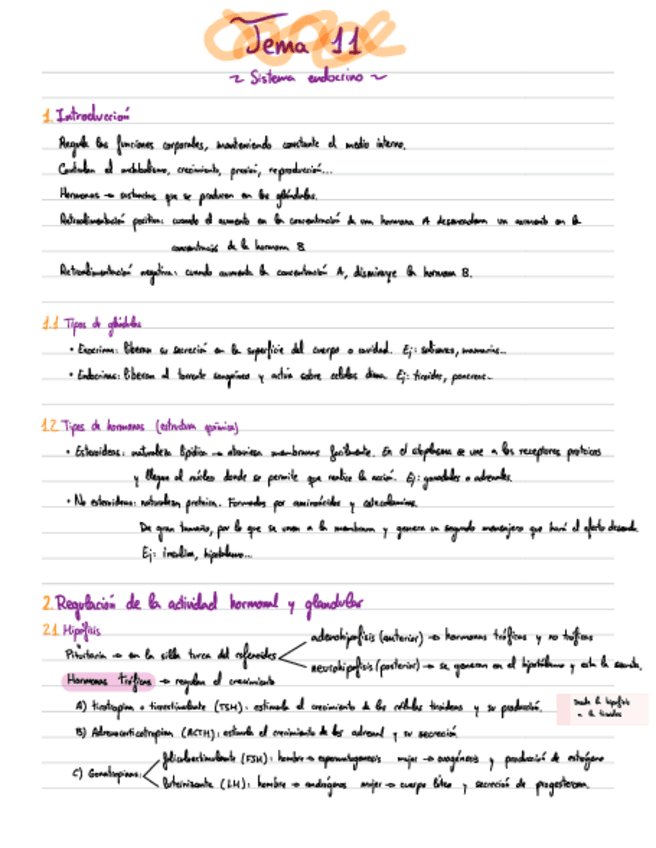 Tema 11
~ Sistema endocrino ~
1. Introducción
Regula las funciones corporales, manteniendo constante el medio interno.
Controlan el metabolismo, crecimiento, presión, reproducción...
Hormonas → sustancias que se producen en las glándulas.
Retroalimentación positiva: cuando el aumento en la concentración de una hormona A desencadena un aumento en la
concentración de la hormona B
Retroalimentación negativa: cuando aumenta la concentración A, disminuye la hormona B.
1.1 Tipos de glándulas
• Exocrinas: liberan su secreción en la superficie del cuerpo o cavidad. Ej: salivares, mamarias...
• Endocrinas: liberan al torrente sanguíneo y actúa sobre células diana. Ej: tiroides, páncreas...
1.2 Tipos de hormonas (estructura química)
• Esteroideas: naturaleza lipídica → atraviesa membranas fácilmente. En el citoplasma se une a los receptores proteicos
y llegan al núcleo donde se permite que realice la acción. Ej: gonadales o adrenales.
• No esteroideas: naturaleza proteica. Formadas por aminoácidos y catecolaminas.
De gran tamaño, por lo que se unen a la membrana y genera un segundo mensajero que hará el efecto deseado.
Ej: insulina, hipotálamo...
2. Regulación de la actividad hormonal y glandular
2.1 Hipófisis
Pituitaria → en la silla turca del esfenoides
adenohipófisis (anterior) → hormonas tróficas y no tróficas
neurohipófisis (posterior) → se generan en el hipotálamo y esta la
Hormonas tróficas → regulan el crecimiento
A) tirotropina o tiroestimulante (TSH): estimula el crecimiento de las células tiroideas y su producción.
Desde la hipófisis
a la tiroides
B) Adrenocorticotropina (ACTH): estimula el crecimiento de las adrenal y su secreción
C) Gonatropinas:
foliculoestimulante (FSH): hombre → espermatogenesis mujer → ovogénesis y producción de estrógeno
luteinizante (LH): hombre → andrógenos mujer → cuerpo lúteo y secreción de progesterona.